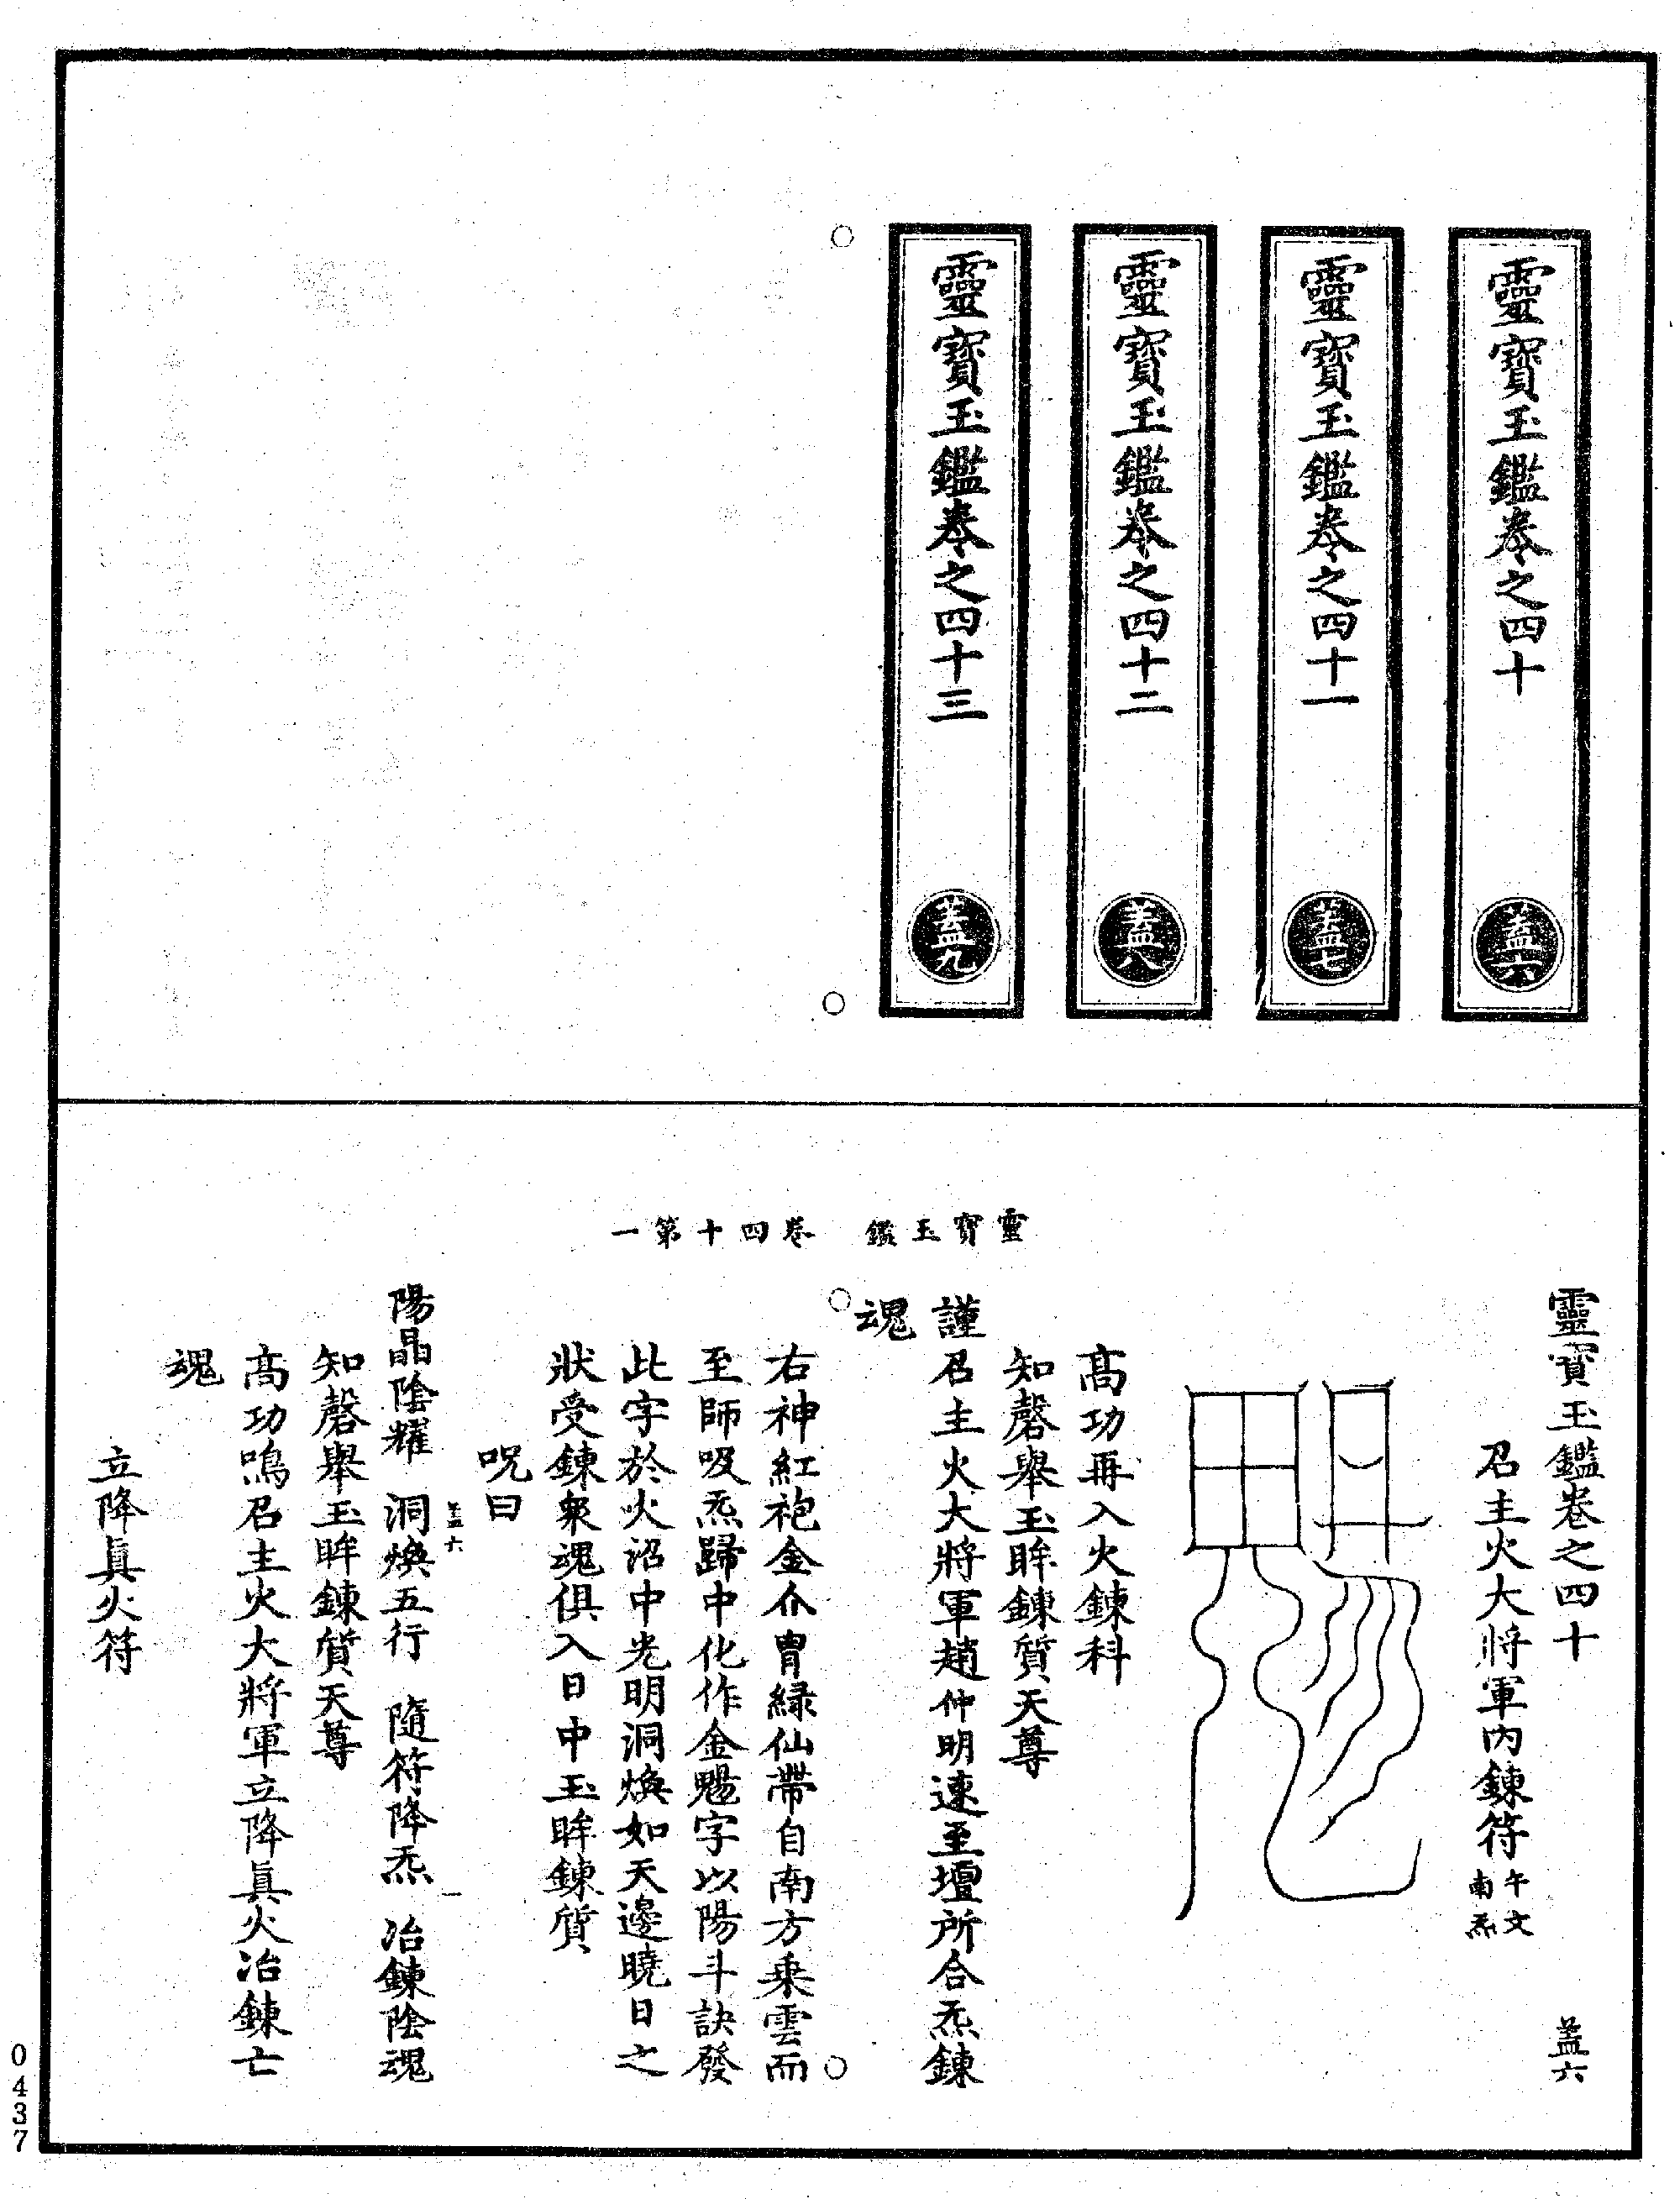 靈寳玉鑑卷之四十
蓋六
靈寳玉鑑卷之四十一
蓋七
靈寳玉鑑卷之四十二
蓋八
靈寳玉鑑卷之四十三
蓋九
靈寳玉鑑 卷四十第一
靈寳玉鑑卷之四十 蓋六
召主火大將軍內鍊符 午文
南炁
高功再入火鍊科
知磬舉玉眸鍊質天尊
謹召主火大將軍趙仲明速至壇所合炁鍊
魂
右神紅袍金介冑緑仙帶自南方乗雲而
至師吸炁歸中化作金䰠字以陽斗訣發
此字於火沼中光明洞煥如天邊曉日之
狀受鍊衆魂俱入日中玉眸鍊質
呪曰
蓋六 一
陽晶陰耀 洞煥五行 隨符降炁 冶鍊陰魂
知磬舉玉眸鍊質天尊
高功鳴召主火大將軍立降眞火冶鍊亡
魂
立降眞火符
0437